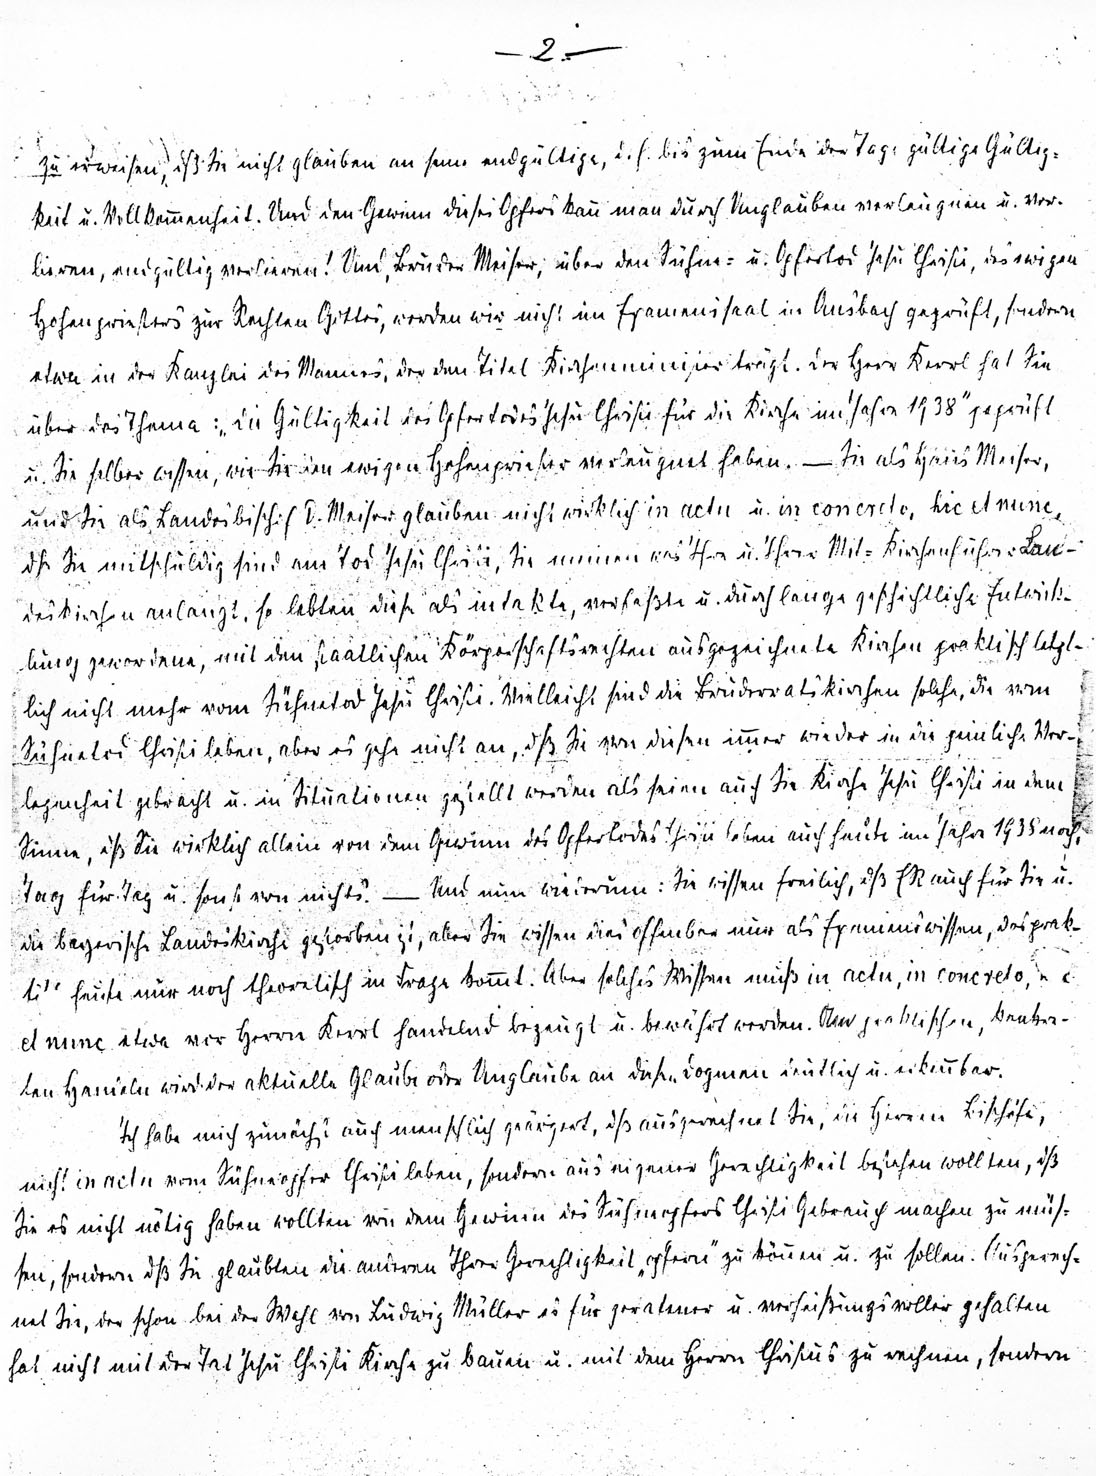 — 2. —
zu erweisen, dß Sie nicht glauben an seine endgültige, d. h. bis zum Ende der Tage gültige Gültig-
keit u. Vollkom̄enheit. Und den Gewinn dieses Opfers kan̄ man durch Unglauben verleugnen u. ver-
lieren, endgültig verlieren! Und, Bruder Meiser, über den Sühne- u. Opfertod Jesu Christi, des ewigen
Hohenpriesters zur Rechten Gottes, werden wir nicht im Examenssaal in Ansbach geprüft, sondern
etwa in der Kanzlei des Mannes, der den Titel Kirchenminister trägt. Der Herr Kerrl hat Sie
über das Thema: „Die Gültigkeit des Opfertodes Jesu Christi für die Kirche im Jahre 1938" geprüft
u. Sie selber wissen, wie Sie den ewigen Hohenpriester verleugnet haben. — Sie als Hans Meiser,
und Sie als Landesbischof D. Meiser glauben nicht wirklich in actu u. in concreto, hic et nunc,
dß Sie mitschuldig sind am Tod Jesu Christi, Sie meinen was Ihre u. Ihrer Mit-Kirchenführer Lan-
deskirchen anlangt, so lebten diese als intakte, verfaßte u. durch lange geschichtliche Entwick-
lung gewordene, mit den staatlichen Körperschaftsrechten ausgezeichnete Kirchen praktisch letzt-
lich nicht mehr vom Sühnetod Jesu Christi. Vielleicht sind die Bruderratskirchen solche, die vom
Sühnetod Christi leben, aber es gehe nicht an, dß Sie von diesen im̄er wieder in die peinliche Ver-
legenheit gebracht u. in Situationen gestellt werden als seien auch Sie Kirche Jesu Christi in dem
Sinne, dß Sie wirklich allein von dem Gewinn des Opfertodes leben auch heute im Jahre 1938 noch,
Tag für Tag u. sonst von nichts. — Und nun wiederum: Sie wissen freilich, dß ER auch für Sie u.
die bayerische Landeskirche gestorben ist, aber Sie wissen dies offenbar nur als Examenswissen, das prak-
tisch heute nur noch theoretisch in Frage kom̄t. Aber solches Wissen muß in actu, in concreto, hic
et nunc etwa vor Herrn Kerrl handelnd bezeugt u. bewährt werden. Am praktischen, konkre-
ten Handeln wird der aktuelle Glaube oder Unglaube an diese Dogmen deutlich u. erken̄bar.
Ich habe mich zunächst auch menschlich geärgert, dß ausgerechnet Sie, die Herren Bischöfe,
nicht in actu vom Sühneopfer Christi leben, sondern aus eigener Gerechtigkeit bestehen wollten, dß
Sie es nicht nötig haben wollten von dem Gewinn des Sühneopfers Christi Gebrauch machen zu müs-
sen, sondern dß Sie glaubten die anderen Ihrer Gerechtigkeit „opfern" zu kön̄en u. zu sollen. Ausgerech-
net Sie, der schon bei der Wahl von Ludwig Müller es für geratener u. verheißungsvoller gehalten
hat nicht mit der Tat Jesu Christi Kirche zu bauen u. mit dem Herrn Christus zu rechnen, sondern